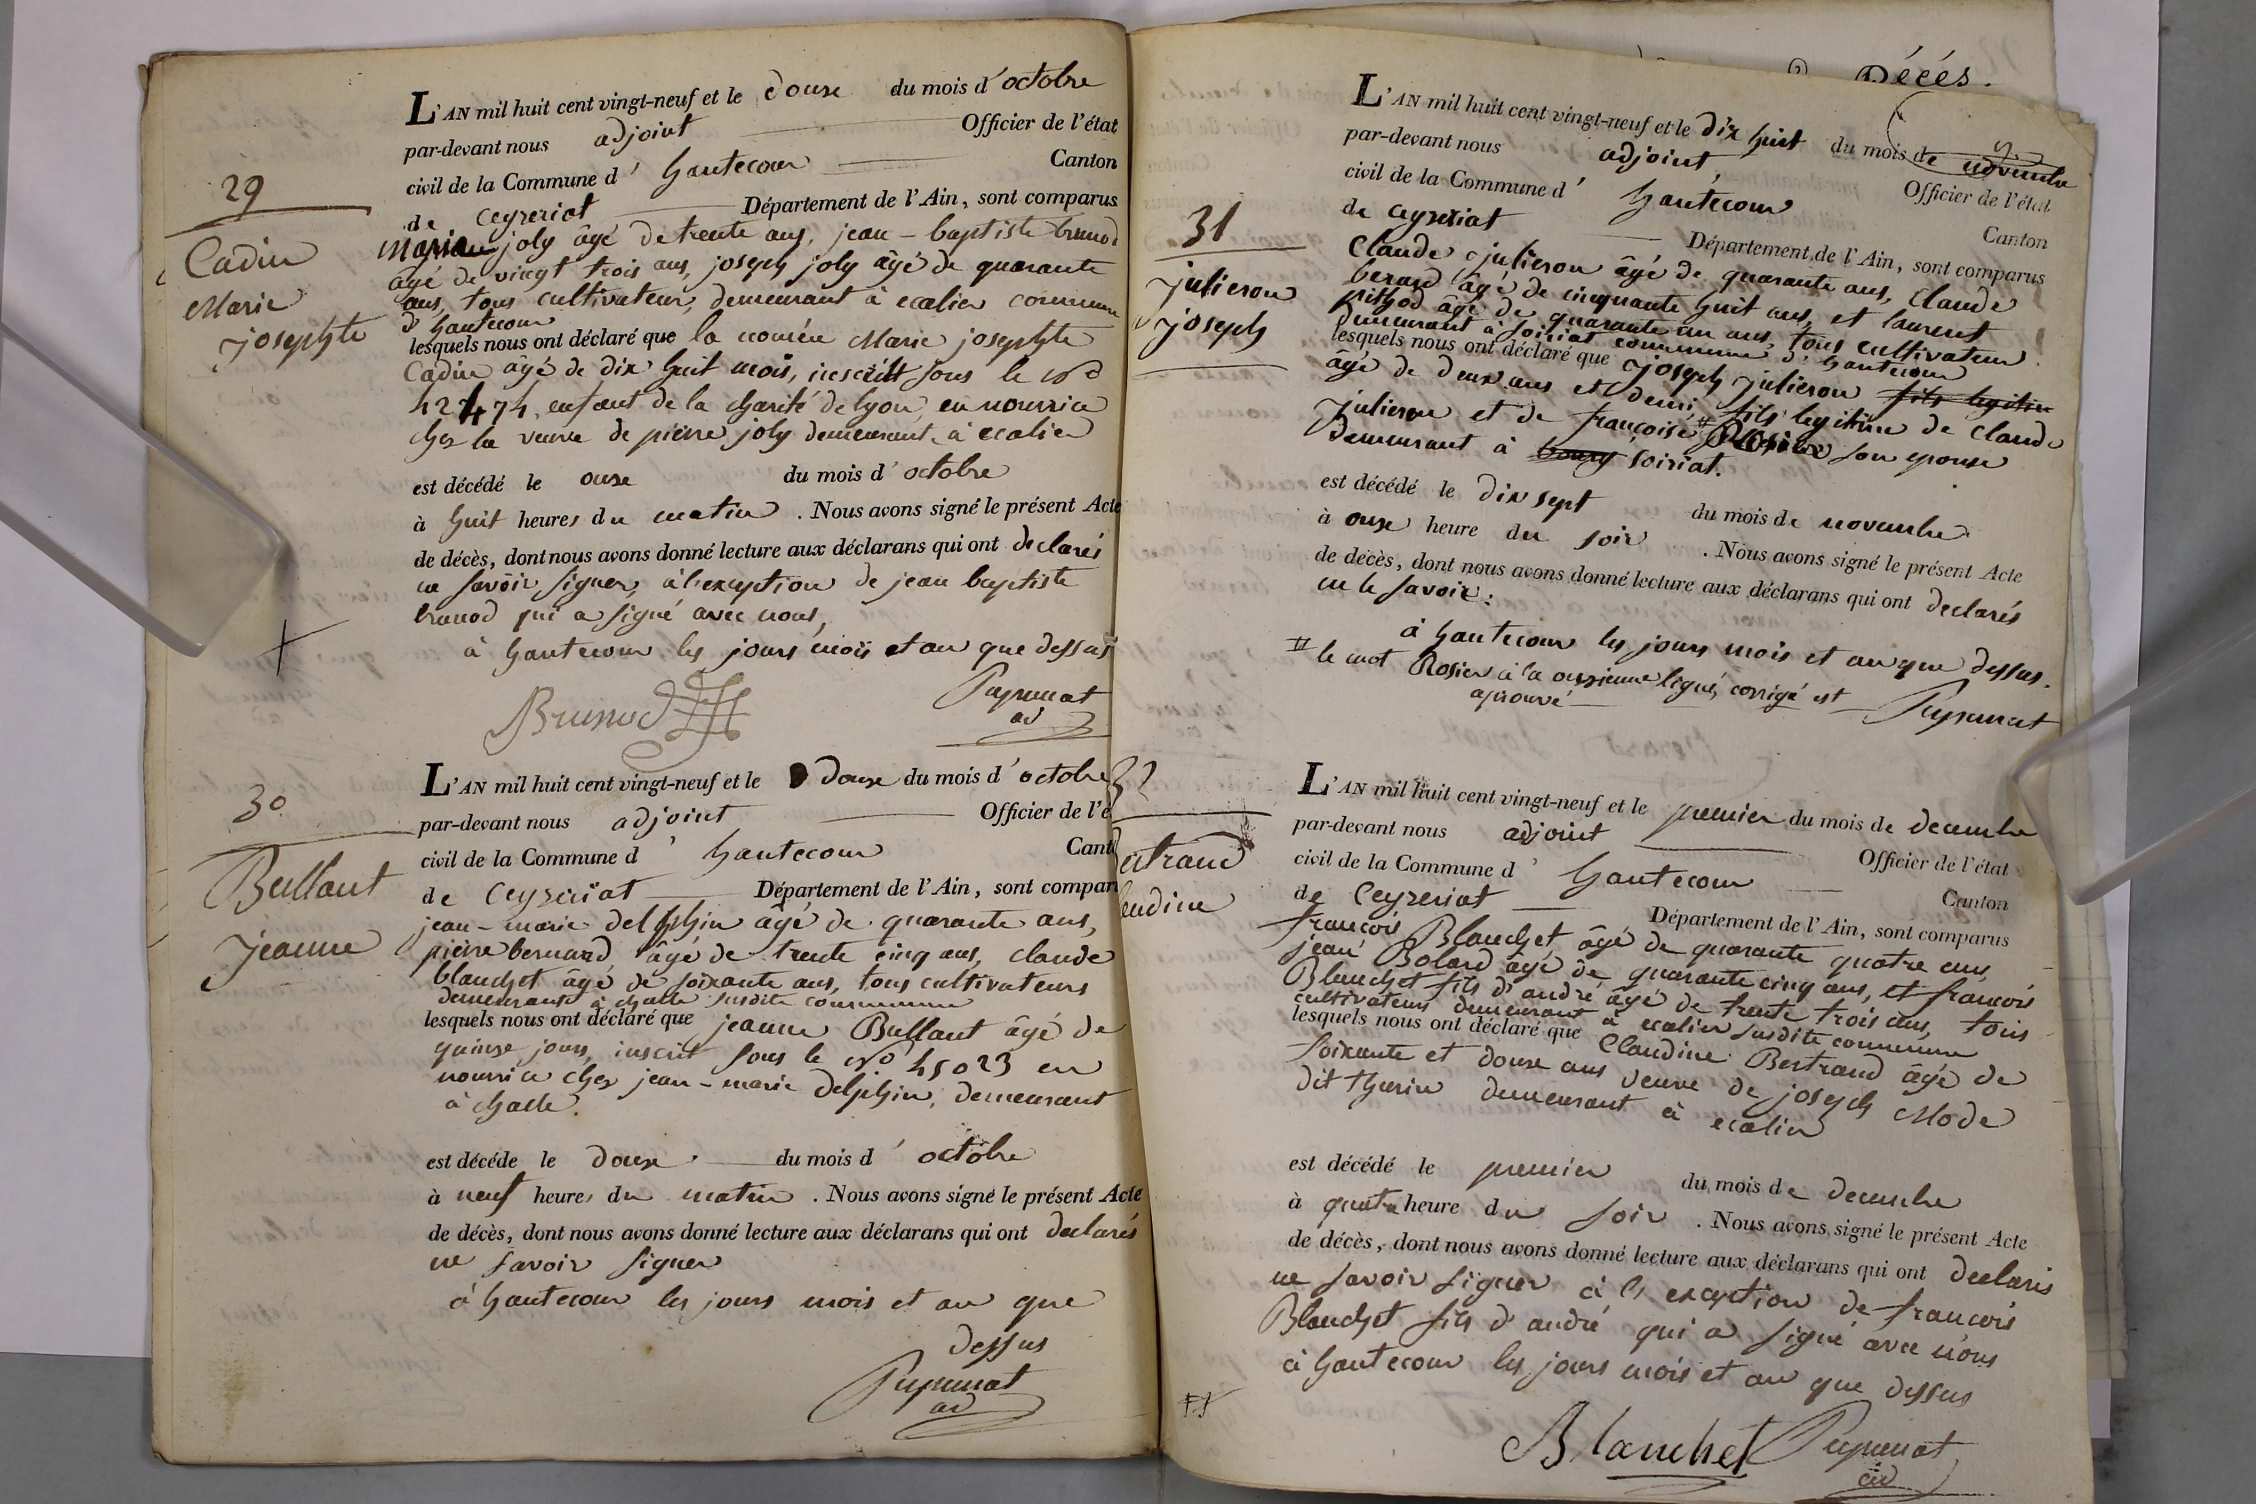 29
Cadin
Marie
josephte
L'AN mil huit cent vingt-neuf et le douze du mois d'octobre
par-devant nous adjoint Officier de l'état
civil de la Commune d'hautecour Canton
de ceyzeriat Département de l'Ain, sont comparus
joly âgé de trente ans, jean-baptiste brunod
âgé de vingt trois ans, joseph joly âgé de quarante
ans, tous cultivateur, demeurant à ecalier commune
d'hautecour
lesquels nous ont déclaré que la nomée Marie josephte
Cadin âgé de dix huit mois, inscritte sous le no
enfant de la charité de lyon, en nourrice
chez la veuve de pierre joly demeurant à ecalier
est décédé le onze du mois d'octobre
à huit heures du matin . Nous avons signé le présent Acte
de décès, dont nous avons donné lecture aux déclarans qui ont declarés
ne savoir signer, à l'exception de jean baptiste
brunod qui a signé avec nous,
à hautecour les jours mois et an que dessus
Brunod
ad
30
Bullant
jeanne
L'AN mil huit cent vingt-neuf et le douze du mois d'octobre
par-devant nous adjoint Officier de l'é
civil de la Commune d'hautecour Cant
de Ceyzeriat Département de l'Ain, sont compar
jean-marie delphin âgé de quarante ans,
pierre bernard âgé de trente cinq ans, claude
blanchet âgé de soixante ans, tous cultivateurs
demeurant à challe susdite commune
lesquels nous ont déclaré que jeanne Bullant âgé de
quinze jours, inscrit sous le no 45023 en
nourrice chez jean-marie delphin, demeurant
à challe.
est décédé le douze du mois d'octobre
à neuf heures du matin . Nous avons signé le présent Acte
de décès, dont nous avons donné lecture aux déclarans qui ont declarés
ne savoir signer
à hautecour les jours mois et an que
dessus
ad
Décés.
31
julieron
joseph
L'AN mil huit cent vingt-neuf et le dix huit du mois de novembre
par-devant nous adjoint Officier de l'état
civil de la Commune d'hautecour Canton
de ceyzeriat Département de l'Ain, sont comparus
Claude julieron âgé de quarante ans, Claude
berard âgé de cinquante huit ans, et laurent
pithod âgé de quarante un ans, tous cultivateur
demeurant à soiriat commune d'hautecour
lesquels nous ont déclaré que joseph julieron fils legitim
âgé de deux ans et demi, fils legitime de Claude
julieron et de françoise # Rosier son epouse
demeurant à bourg soiriat.
est décédé le dix sept du mois de novembre
à onze heure du soir . Nous avons signé le présent Acte
de décès, dont nous avons donné lecture aux déclarans qui ont declarés
ne le savoir:
à hautecour les jours mois et an que dessus.
# le mot Rosier à la onzieme ligne, corrigé est
aprouvé
32
ertrand
laudine
L'AN mil huit cent vingt-neuf et le premier du mois de decembre
par-devant nous adjoint Officier de l'état
civil de la Commune d'hautecour Canton
de Ceyzeriat Département de l'Ain, sont comparus
francois Blanchet âgé de quarante quatre ans,
jean Bolard âgé de quarante cinq ans, et francois
Blanchet fils d'andré âgé de trente trois ans, tous
cultivateurs demeurant à ecalier susdite commune
lesquels nous ont déclaré que Claudine Bertrand âgé de
soixante et douze ans veuve de joseph Mode
dit thurin demeurant à ecalier
est décédé le premier du mois de decembre
à quatre heure du soir . Nous avons signé le présent Acte
de décès, dont nous avons donné lecture aux déclarans qui ont declaris
ne savoir signer à l'exception de francois
Blanchet fils d'andré qui a signé avec nous
à hautecour les jours mois et an que dessus
Blanchet
ad